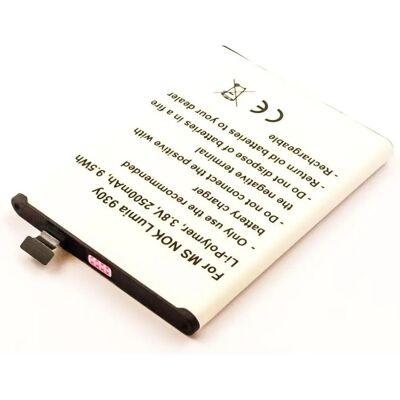 For MS NOK Lumia 930y
Li-Polymer, 3.8V, 2500mAh, 9.5Wh
- Only use the recommended
battery charger
- Do not connect the positive with
the negative terminal
- Do not dispose of batteries in a fire
- Return old batteries to your dealer
- Rechargeable
CE